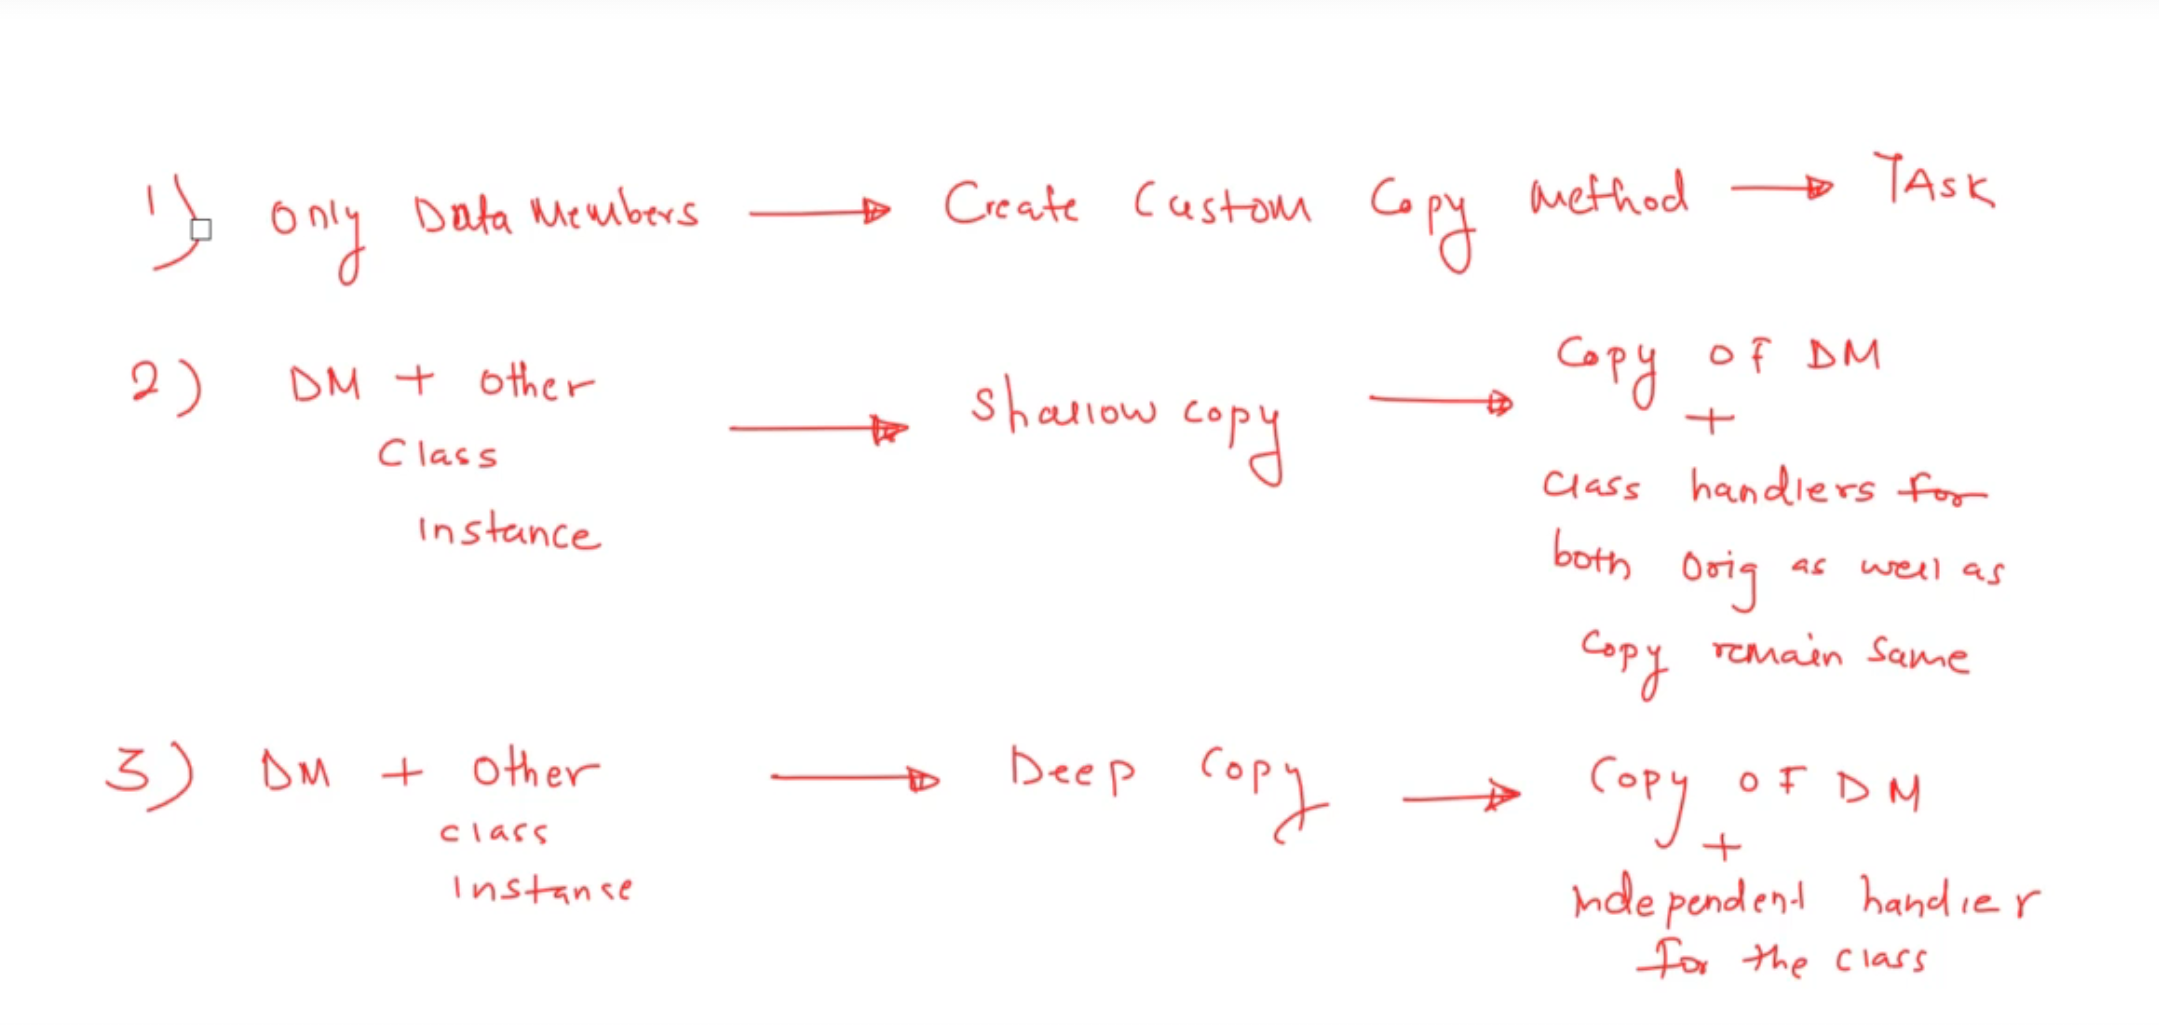 1) Only Data Members → Create Custom Copy method → TASK
2) DM + other Class Instance → Shallow copy → Copy of DM
+
class handlers for
both Orig as well as
Copy remain same
3) DM + other class Instanse → Deep Copy → Copy OF DM
+
independent handler
for the class